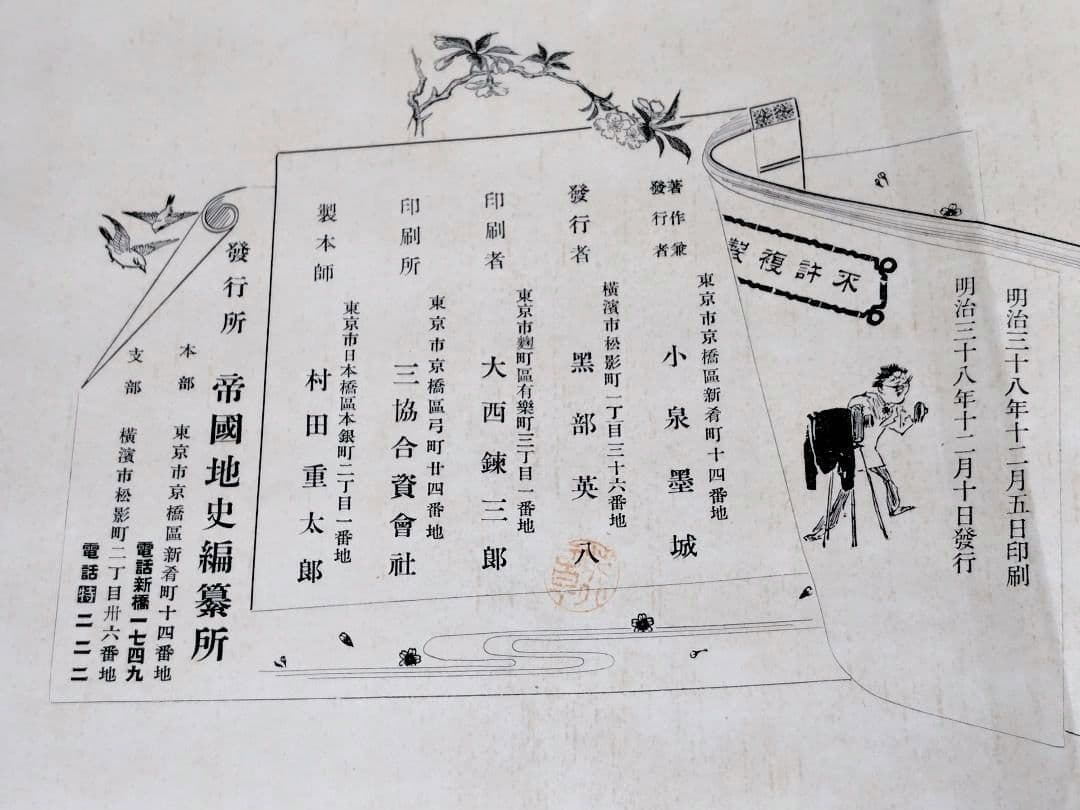 明治三十八年十二月五日印刷
明治三十八年十二月十日發行
不許複製
著作兼
發行者
東京市京橋區新肴町十四番地
小泉墨城
發行者
横濱市松影町一丁目三十六番地
黑部英八
印刷者
東京市麴町區有樂町三丁目一番地
大西鍊三郎
印刷所
東京市京橋區弓町廿四番地
三協合資會社
製本師
東京市日本橋區本銀町二丁目一番地
村田重太郎
發行所
帝國地史編纂所
本部
東京市京橋區新肴町十四番地
電話新橋一七四九
支部
横濱市松影町二丁目卅六番地
電話特二二二